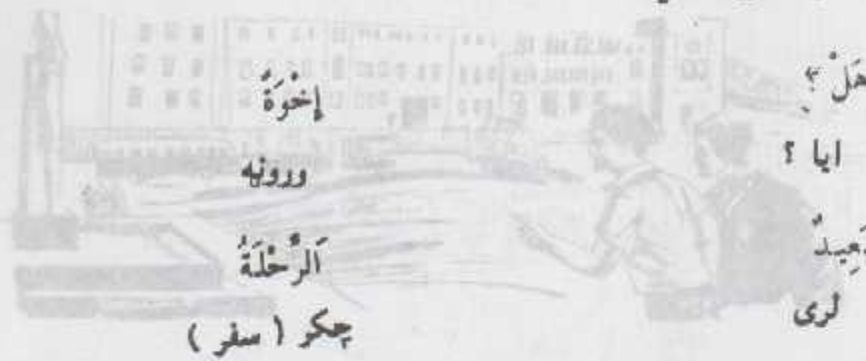 هَلْ ؟
ايا ؟
بَعِيدٌ
لرى
إِخْوَةٌ
ورونه
اَلرِّحْلَةُ
چكر ( سفر )